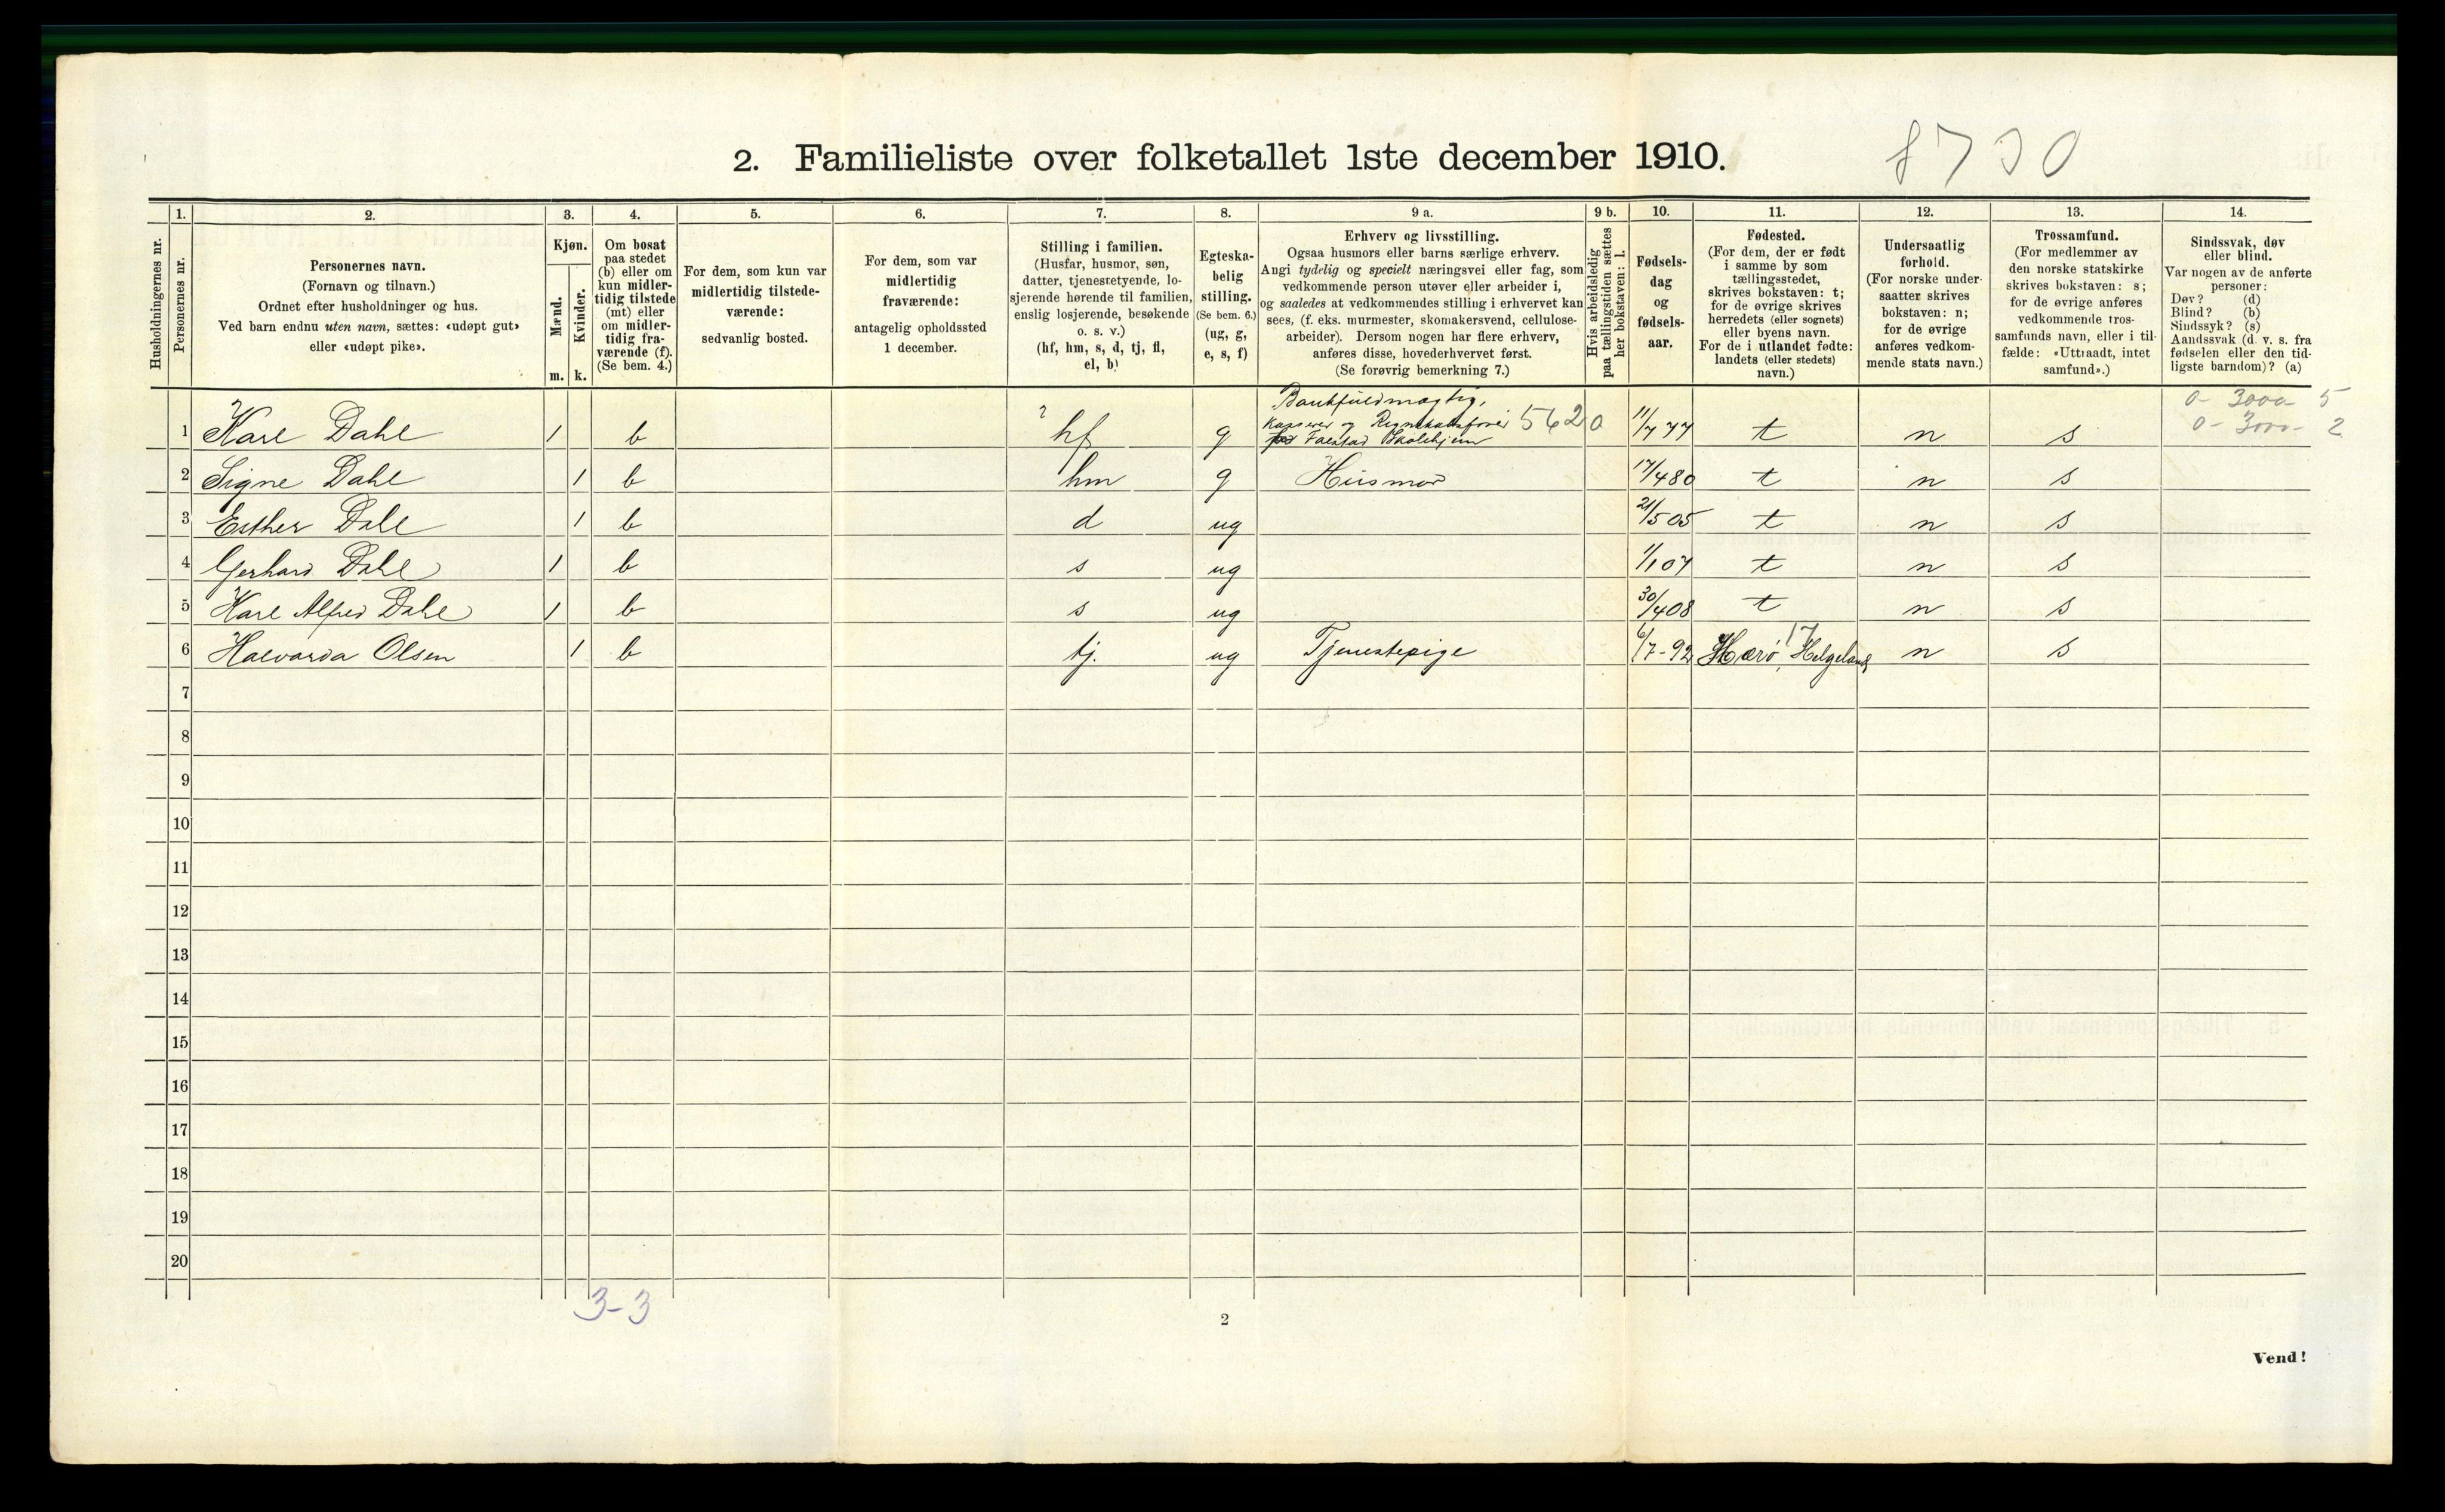 8730
2. Familieliste over folketallet 1ste december 1910.
Husholdningernes nr.
1.
Personernes nr.
2.
Personernes navn.
(Fornavn og tilnavn.)
Ordnet efter husholdninger og hus.
Ved barn endnu uten navn, sættes: «udøpt gut»
eller «udøpt pike».
3.
Kjøn.
Mænd.
Kvinder.
m. k.
4.
Om bosat
paa stedet
(b) eller om
kun midler-
tidig tilstede
(mt) eller
om midler-
tidig fra-
værende (f).
(Se bem. 4.)
5.
For dem, som kun var
midlertidig tilstede-
værende:
sedvanlig bosted.
6.
For dem, som var
midlertidig
fraværende:
antagelig opholdssted
1 december.
7.
Stilling i familien.
(Husfar, husmor, søn,
datter, tjenestetyende, lo-
sjerende hørende til familien,
enslig losjerende, besøkende
o. s. v.)
(hf, hm, s, d, tj, fl,
el, b)
8.
Egteska-
belig
stilling.
(Se bem. 6.)
(ug, g,
e, s, f)
9 a.
Erhverv og livsstilling.
Ogsaa husmors eller barns særlige erhverv.
Angi tydelig og specielt næringsvei eller fag, som
vedkommende person utøver eller arbeider i,
og saaledes at vedkommendes stilling i erhvervet kan
sees, (f. eks. murmester, skomakersvend, cellulose-
arbeider). Dersom nogen har flere erhverv,
anføres disse, hovederhvervet først.
(Se forøvrig bemerkning 7.)
9 b.
Hvis arbeidsledig
paa tællingstiden sættes
her bokstaven: l.
10.
Fødsels-
dag
og
fødsels-
aar.
11.
Fødested.
(For dem, der er født
i samme by som
tællingsstedet,
skrives bokstaven: t;
for de øvrige skrives
herredets (eller sognets)
eller byens navn.
For de i utlandet fødte:
landets (eller stedets)
navn.)
12.
Undersaatlig
forhold.
(For norske under-
saatter skrives
bokstaven: n;
for de øvrige
anføres vedkom-
mende stats navn.)
13.
Trossamfund.
(For medlemmer av
den norske statskirke
skrives bokstaven: s;
for de øvrige anføres
vedkommende tros-
samfunds navn, eller i til-
fælde: «Uttraadt, intet
samfund».)
14.
Sindssvak, døv
eller blind.
Var nogen av de anførte
personer:
Døv? (d)
Blind? (b)
Sindssyk? (s)
Aandssvak (d. v. s. fra
fødselen eller den tid-
ligste barndom)? (a)
0- 3000 5
0- 3000- 2
Bankfuldmægtig,
Kasserer og Regnskabsfører 5620
Falstad Skolehjem
1 Karl Dahl 1 b hf g 11/7 77 t n s
2 Signe Dahl 1 b hm g Husmor 17/4 80 t n s
3 Esther Dahl 1 b d ug 21/5 05 t n s
4 Gerhard Dahl 1 b s ug 1/1 07 t n s
5 Karl Alfred Dahl 1 b s ug 30/4 08 t n s
6 Halvarda Olsen 1 b tj. ug Tjenestepige 6/7-92 Herø, Helgeland 17 n s
7
8
9
10
11
12
13
14
15
16
17
18
19
20
3-3
2
Vend!